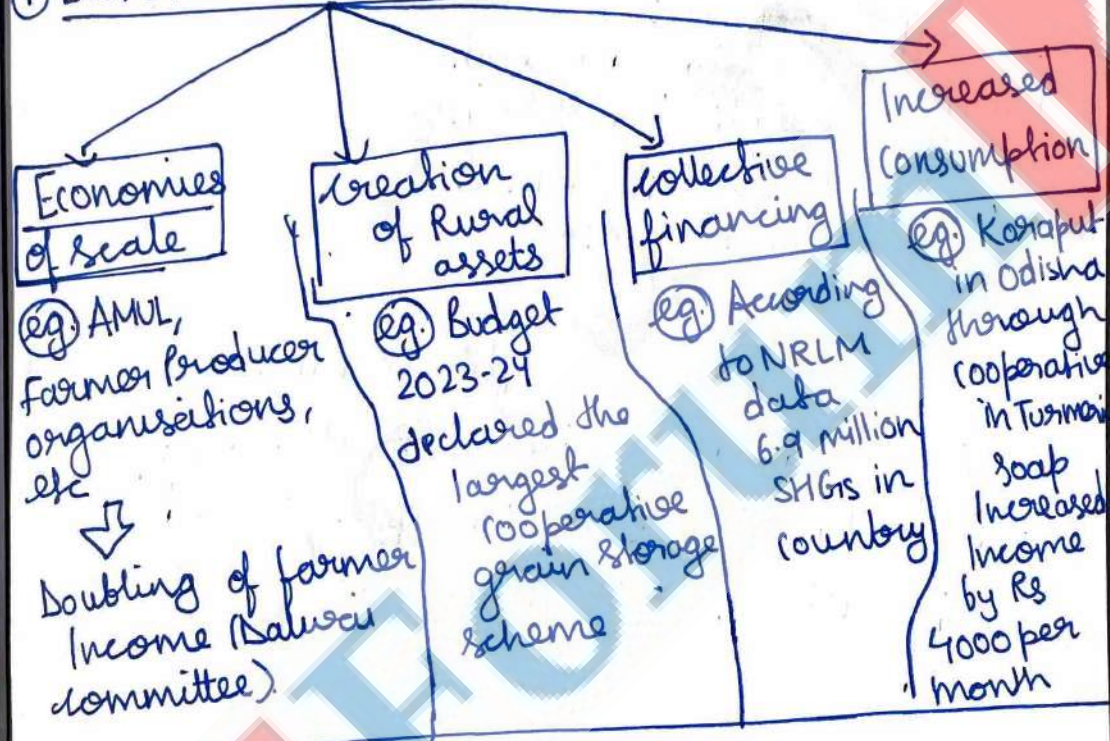 ①
Economies
of scale
eg. AMUL,
Farmer Producer
organisations,
etc
Doubling of farmer
Income (Dalwai
committee).
creation
of Rural
assets
eg. Budget
2023-24
declared the
largest
cooperative
grain storage
scheme
collective
financing
eg. According
to NRLM
data
6.9 million
SHGs in
country
Increased
consumption
eg. Koraput
in Odisha
through
cooperative
in
soap
Increased
Income
by Rs
4000 per
month
Forum